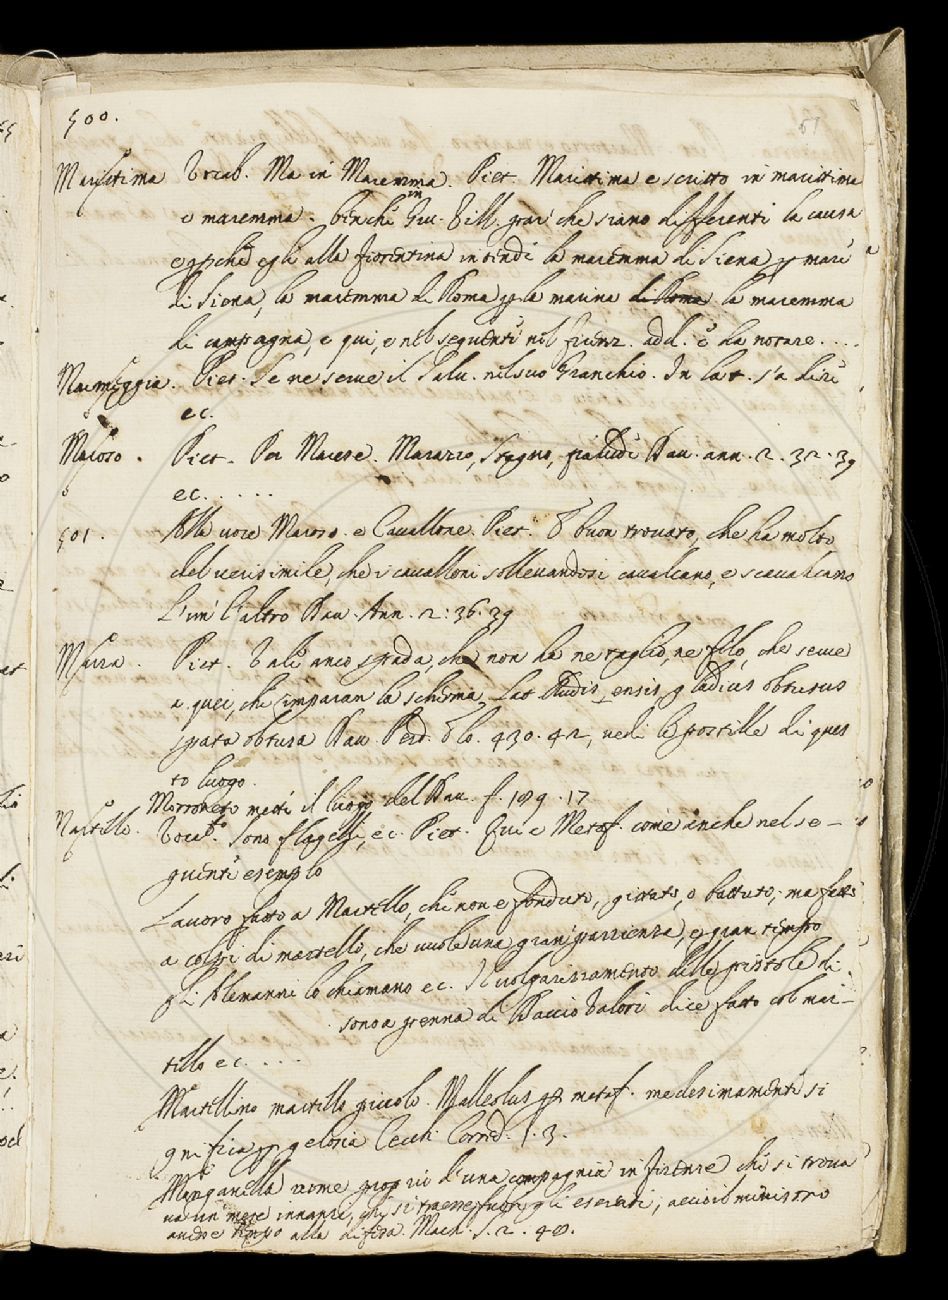 500.
51
Marittima Vocab. Ma in Maremma. Piet. Marittima e scritto in marittima
e maremma. benche in Gio: Vill. par che siano differenti la causa
e perche egli alla fiorentina intende la maremma di Siena per mare
di Siena, la maremma di Roma per la marina di Roma la maremma
di campagna, e qui, e nel seguente nel fiorent. add. è da notare....
Marmeggia. Piet. Se ne serve il Salv. nel suo Granchio. In lat. s'a dire
ec.
Maroso. Piet. Per Marese. Marazzo, Stagno, Palude Dav. ann. 2. 32. 39
ec.....
501. Alla voce Maroso. e Cavallone. Piet. È buon trovato, che ha molto
del verisimile, che i cavalloni sollevandosi cavalcano, e scavalcano
l'un l'altro Dav. Ann. 2: 36. 39
Marra. Piet. Vale anco spada, che non ha ne taglio, ne filo, che serve
a quei, che imparan la scherma, Lat. Rudis, ensis, gladius obtusus
spata obtusa Dav. Perd. Elo. 430. 42, vedi le postille di ques
to luogo.
Morroneto metti il luogo del Dav. f. 189. 17
Martello. Vocab. sono flagelli, ec. Piet. Qui e Metaf. come anche nel se-
guente esemplo
Lavoro fatto a Martello, che non e fonduto, gittato, o battuto, ma fatto
a colpi di martello, che vuole una gran pazzienza, e gran tempo
gli Alemanni lo chiamano ec. Il volgarizzamento delle pistole di
sono a penna di Baccio Valori dice fatto col mar-
tello ec....
Martellino martello piccolo. Malleolus per metaf. medesimamente si
gnifica per gelosia Cecch. Corred. 1. 3.
Manganella nome proprio d'una compagnia in firenze che si trova
va un mese innanzi, che si traesse fuori gli eserciti, accioche ministro
anche tempo alla difesa. Mach. S. 2. 40.